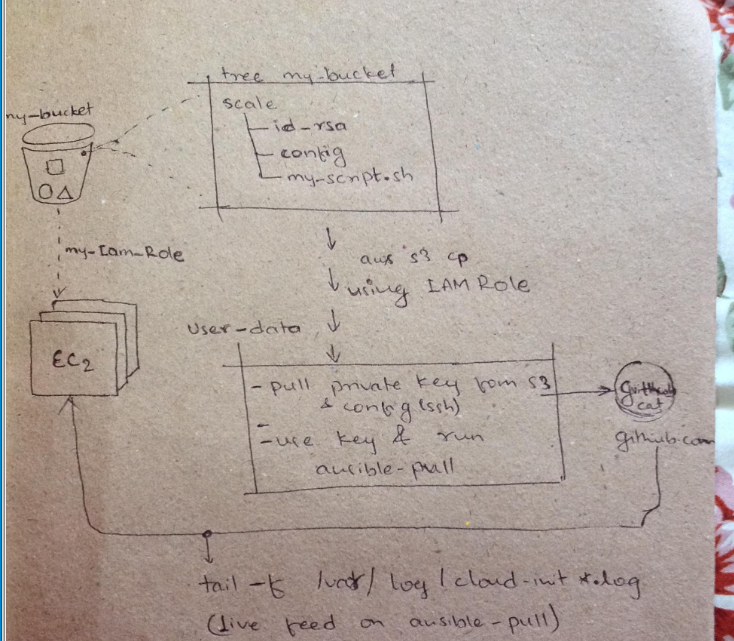 tree my-bucket
my-bucket
scale
id-rsa
config
my-script.sh
my-Iam-Role
aws s3 cp
using IAM Role
user-data
EC2
- pull private key from s3
& config (ssh)
- use key & run
ansible-pull
github
cat
github.com
tail -f /var/log/cloud-init*.log
(live feed on ansible-pull)